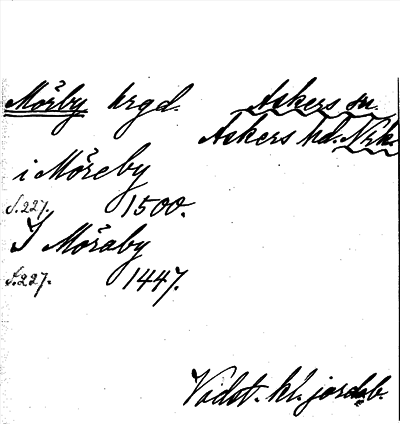 Mörby hrgd.
Askers sn.
Askers hd. Nrk.
i Möreby
S. 227. 1500.
I Möraby
S. 227. 1447.
Vadst. kl. jordeb.